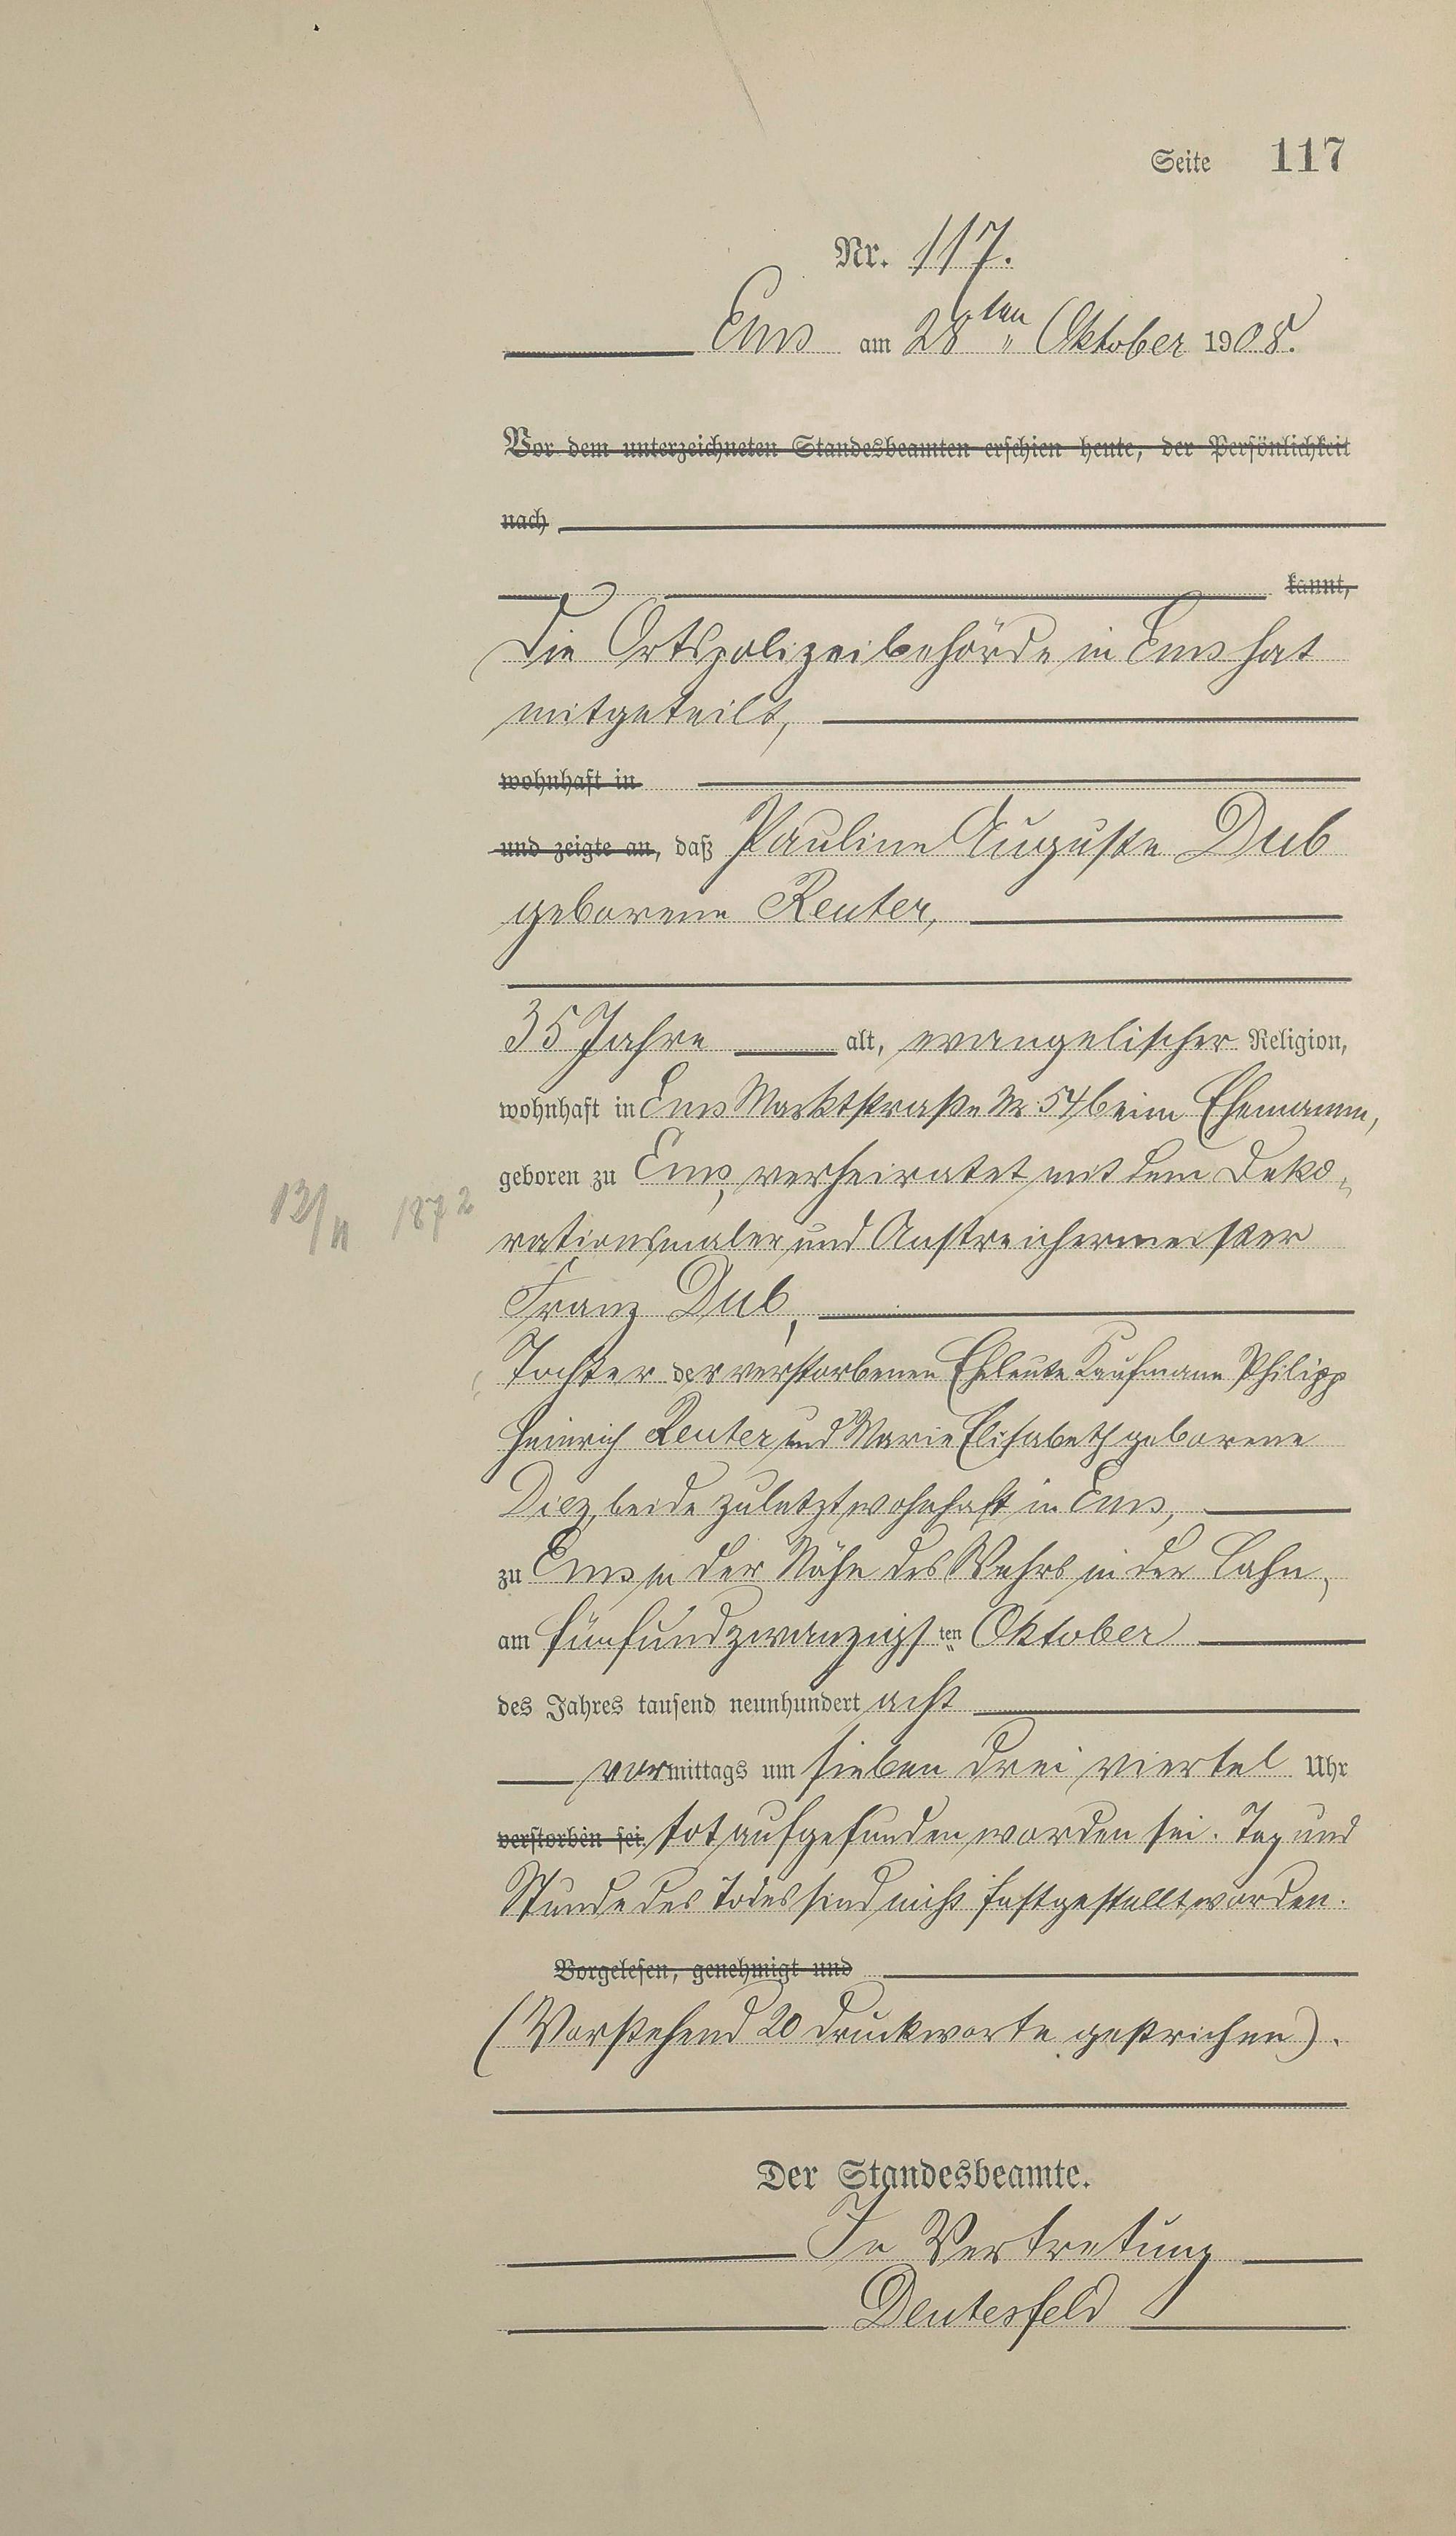 Seite 117
Nr. 117.
Ems am 28ten Oktober 1908.
Vor dem unterzeichneten Standesbeamten erschien heute, der Persönlichkeit
nach
kannt,
Die Ortspolizeibehörde in Ems hat
mitgeteilt,
wohnhaft in
und zeigte an, daß Pauline Auguste Dub
geborene Reuter,
35 Jahre alt, evangelischer Religion,
wohnhaft in Ems Marktstraße Nr. 54 beim Ehemann,
geboren zu Ems, verheiratet mit dem Deko-
13/11 1872
rationsmaler und Anstreichermeister
Franz Dub,
Tochter der verstorbenen Eheleute Kaufmann Philipp
Heinrich Reuter und Marie Elisabeth geborene
Diez, beide zuletzt wohnhaft in Ems,
zu Ems in der Nähe des Wehrs in der Lahn,
am fünfundzwanzigsten Oktober
des Jahres tausend neunhundert acht
vormittags um sieben drei viertel Uhr
verstorben sei tot aufgefunden worden sei. Tag und
Stunde des Todes sind nicht festgestellt worden.
Vorgelesen, genehmigt und
(Vorstehend 20 Druckworte gestrichen).
Der Standesbeamte.
In Vertretung
Deutesfeld